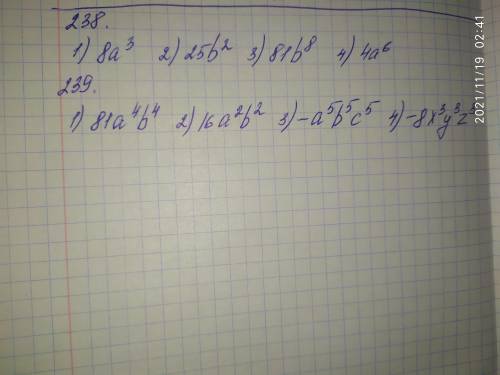 238.
1) 8a³ 2) 25b² 3) 81b⁸ 4) 4a⁶
239.
1) 81a⁴b⁴ 2) 16a²b² 3) -a⁵b⁵c⁵ 4) -8x³y³z³
2021/11/19 02:41